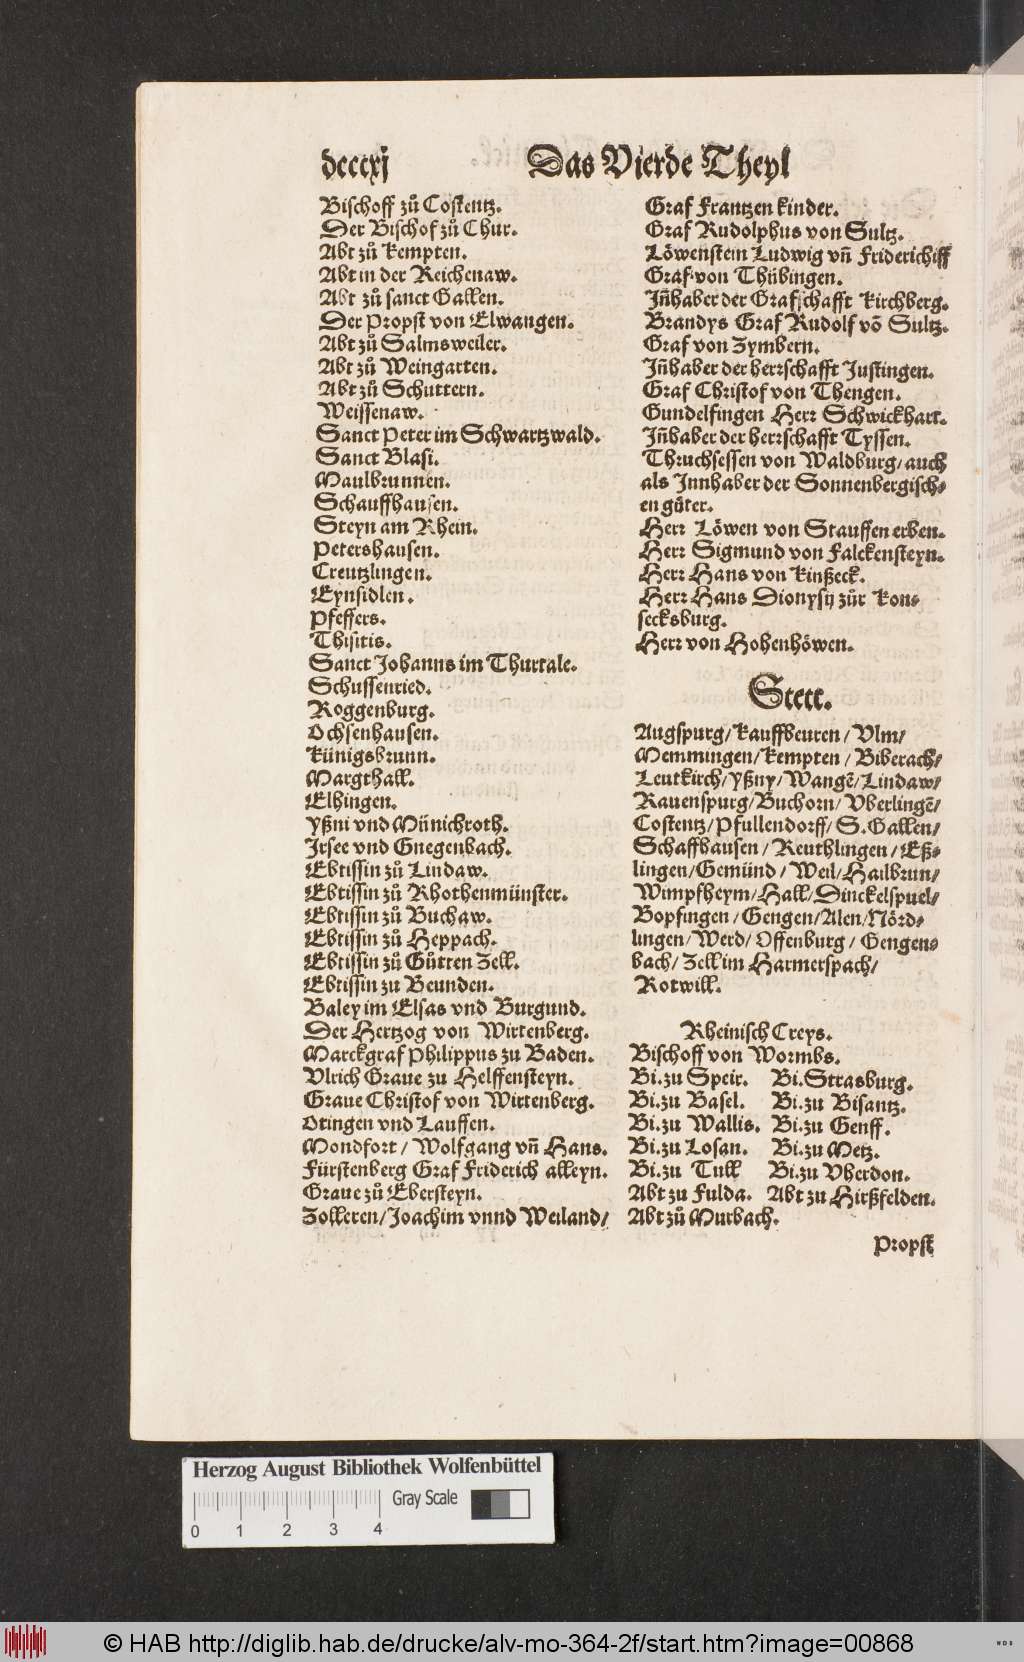 dccccxj Das Vierde Theyl
Bischoff zů Costentz.
Der Bischof zů Chur.
Abt zů Kempten.
Abt in der Reichenaw.
Abt zů sanct Gallen.
Der Propst von Elwangen.
Abt zů Salmsweiler.
Abt zů Weingarten.
Abt zů Schuttern.
Weissenaw.
Sanct Peter im Schwartzwald.
Sanct Blasi.
Maulbrunnen.
Schauffhausen.
Steyn am Rhein.
Petershausen.
Creutzlingen.
Eynsidlen.
Pfeffers.
Thisitis.
Sanct Johanns im Thurtale.
Schussenried.
Roggenburg.
Ochsenhausen.
Künigsbrunn.
Margthall.
Elhingen.
Yßni vnd Münichroth.
Irsee vnd Gnegenbach.
Ebtissin zů Lindaw.
Ebtissin zů Rhothenmünster.
Ebtissin zů Buchaw.
Ebtissin zů Heppach.
Ebtissin zů Gůtten Zell.
Ebtissin zu Beunden.
Baley im Elsas vnd Burgund.
Der Hertzog von Wirtenberg.
Marckgraf Philippus zu Baden.
Vlrich Graue zu Helffensteyn.
Graue Christof von Wirtenberg.
Otingen vnd Lauffen.
Mondfort / Wolfgang vñ Hans.
Fürstenberg Graf Friderich alleyn.
Graue zů Ebersteyn.
Zolleren/Joachim vnnd Weiland/
Graf Frantzen kinder.
Graf Rudolphus von Sultz.
Löwenstein Ludwig vñ Friderichiss
Graf von Thübingen.
Jñhaber der Grafschafft Kirchberg.
Brandys Graf Rudolf võ Sultz.
Graf von Zymbern.
Jñhaber der herrschafft Justingen.
Graf Christof von Thengen.
Gundelfingen Herr Schwickhart.
Jñhaber der herrschafft Tyssen.
Thruchsessen von Waldburg/auch
als Innhaber der Sonnenbergisch⸗
en gůter.
Herr Löwen von Stauffen erben.
Herr Sigmund von Falckensteyn.
Herr Hans von Kinßeck.
Herr Hans Dionysij zůr Kon⸗
secksburg.
Herr von Hohenhöwen.
Stett.
Augspurg/Kauffbeuren / Vlm/
Memmingen/Kempten / Biberach/
Leutkirch/Yßny/Wangẽ/Lindaw/
Rauenspurg/Buchorn/Vberlingẽ/
Costentz/Pfullendorff/S.Gallen/
Schaffhausen / Reuthlingen / Eß⸗
lingen/Gemünd / Weil/Hailbrun/
Wimpfheym/Hall/Dinckelspuel/
Bopfingen / Gengen/Alen/Nörd⸗
lingen/Werd/ Offenburg / Gengen⸗
bach/ Zell im Harmerspach/
Rotwill.
Rheinisch Creys.
Bischoff von Wormbs.
Bi.zu Speir. Bi.Strasburg.
Bi.zu Basel. Bi.zu Bisantz.
Bi.zu Wallis. Bi.zu Genff.
Bi.zu Losan. Bi.zu Metz.
Bi.zu Tull Bi.zu Vherdon.
Abt zu Fulda. Abt zu Hirßfelden.
Abt zů Murbach.
Propst
Herzog August Bibliothek Wolfenbüttel
Gray Scale
0 1 2 3 4
© HAB http://diglib.hab.de/drucke/alv-mo-364-2f/start.htm?image=00868